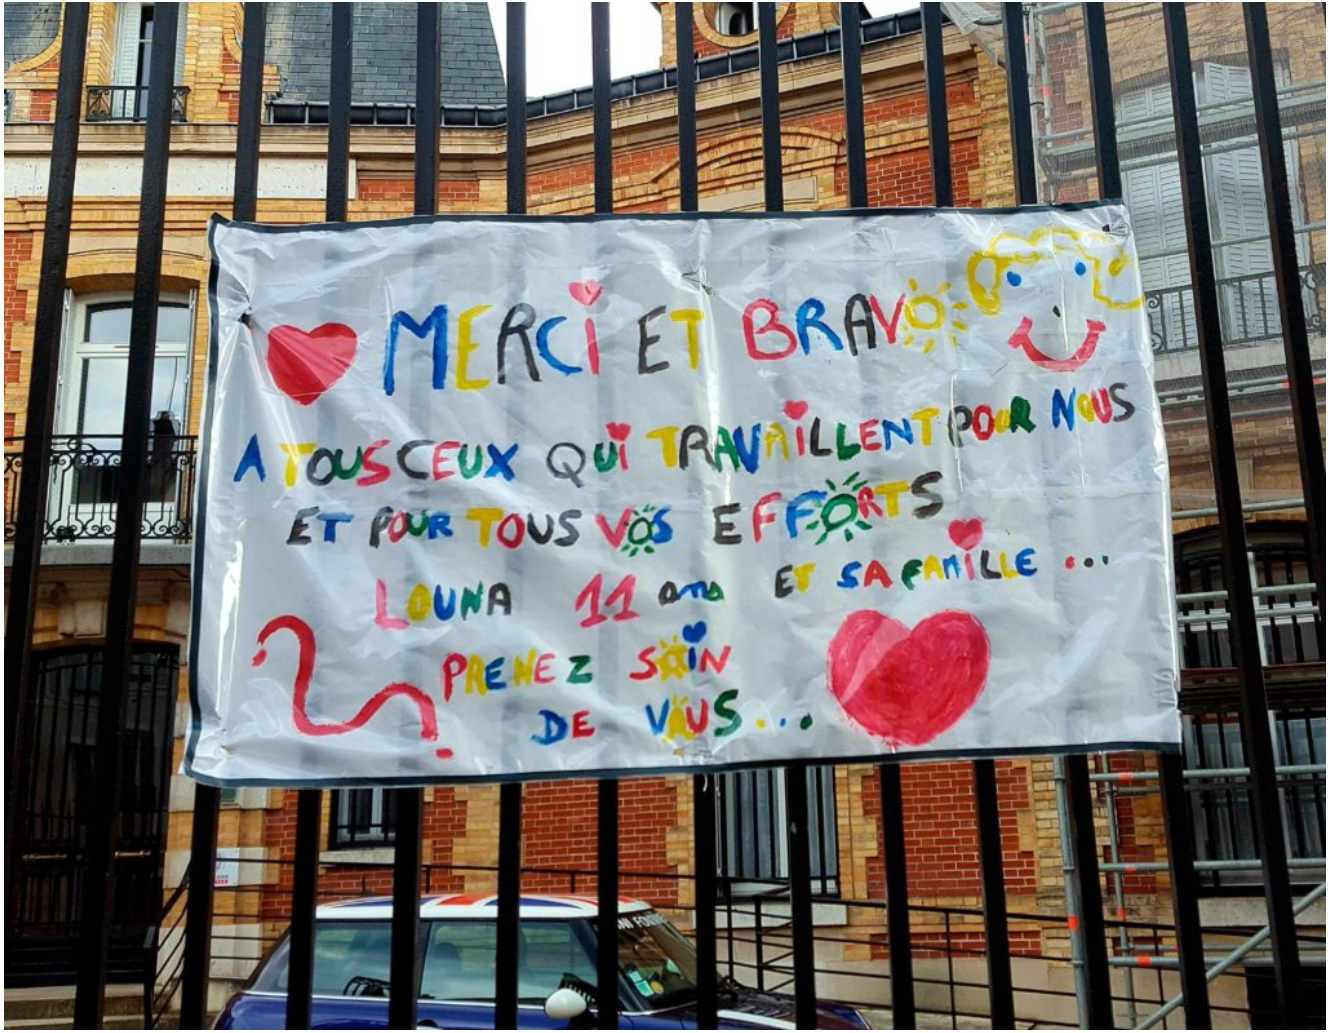 MERCI ET BRAVO
A TOUS CEUX QUI TRAVAILLENT POUR NOUS
ET POUR TOUS VOS EFFORTS
LOUNA 11 ans ET SA FAMILLE ...
PRENEZ SOIN
DE VOUS...